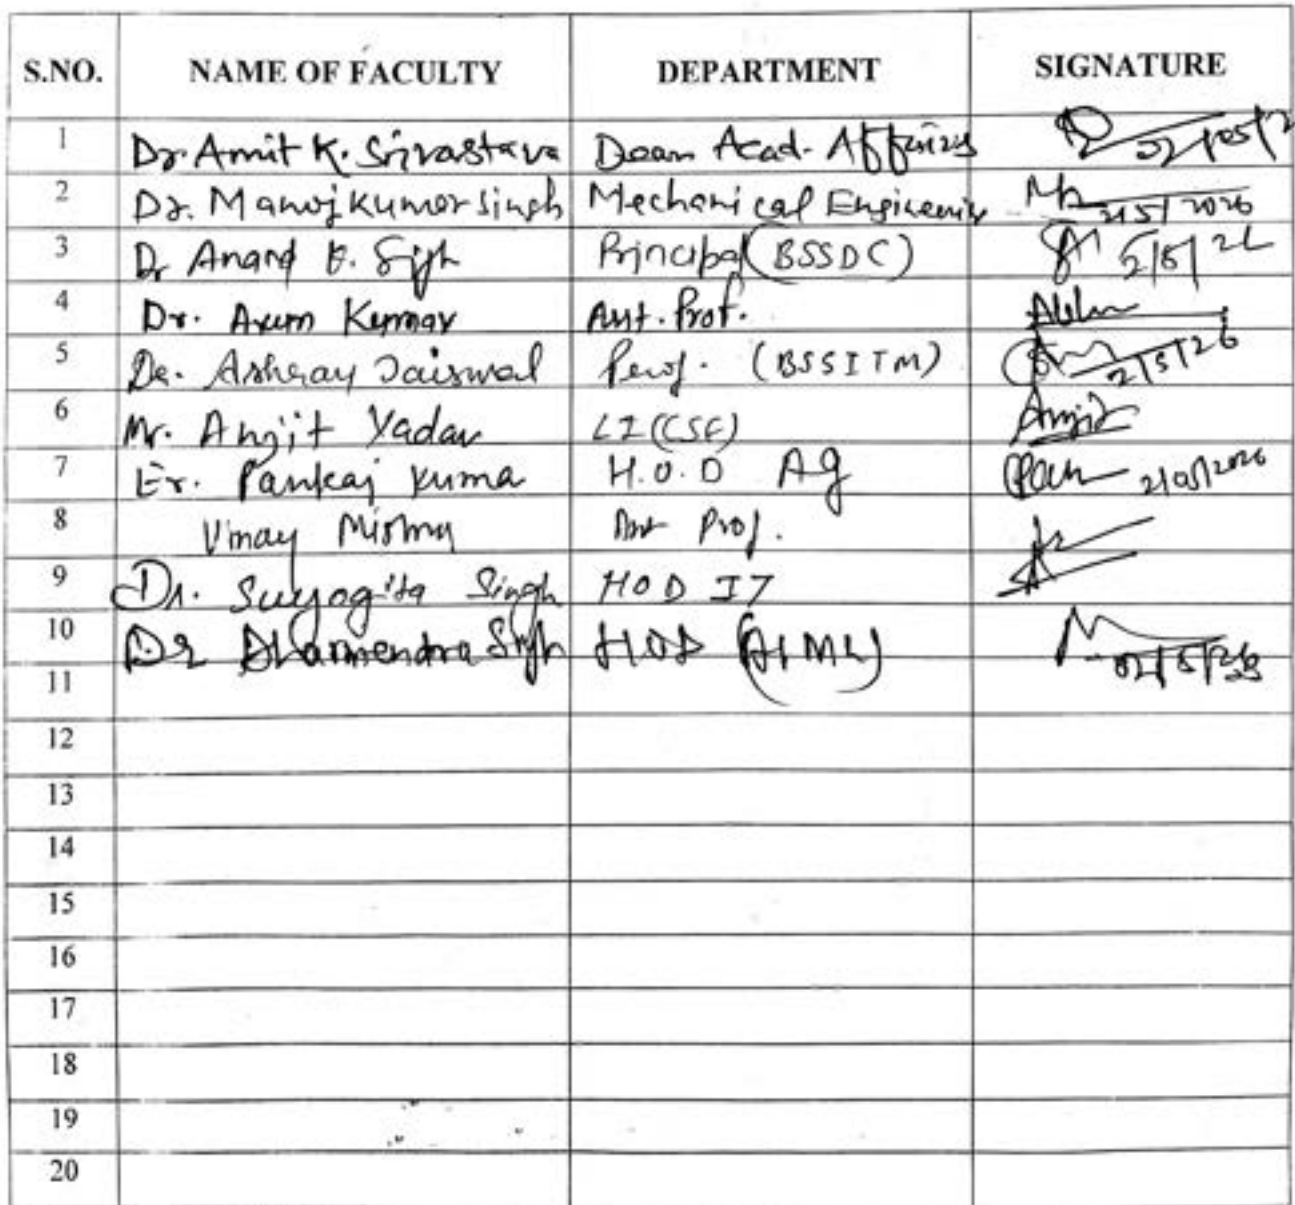 S.NO. NAME OF FACULTY DEPARTMENT SIGNATURE
1 Dr. Amit K. Srivastava Dean Acad. Affairs
2 Dr. Manoj Kumar Singh Mechanical Engineering 2/5/2026
3 Dr Anand Singh Principal (BSSDC)
4 Dr. Arun Kumar Asst. Prof.
5 Dr. Ashray Jaiswal Prof. (BSSITM) 2/5/26
6 Mr. Anjit Yadav (CSE)
7 Er. Pankaj Kuma H.O.D Ag 2/05/2026
8 Vinay Mishra Asst Prof.
9 Dr. Suyogita Singh HOD IT
10 Dr Dharmendra Singh HOD (AIML)
11
12
13
14
15
16
17
18
19
20